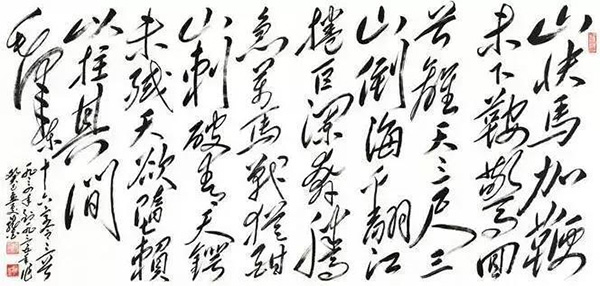 山快馬加鞭
未下鞍驚回
首離天三尺三
山倒海翻江
捲巨瀾奔騰
急萬馬戰猶酣
山刺破青天鍔
未殘天欲墮賴
以拄其間
毛澤東
十六字令三首